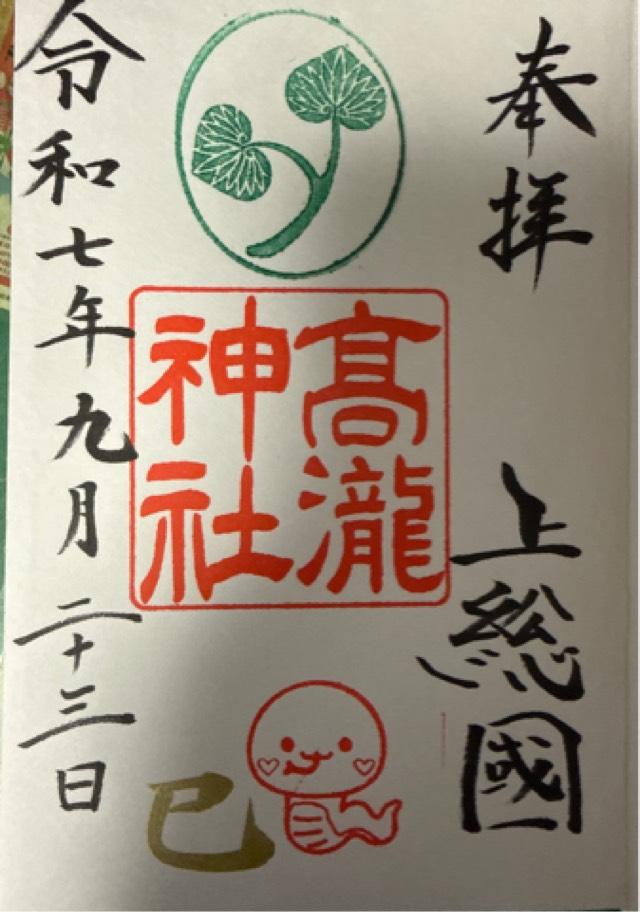 奉拝
上総國
髙瀧
神社
巳
令和七年九月二十三日